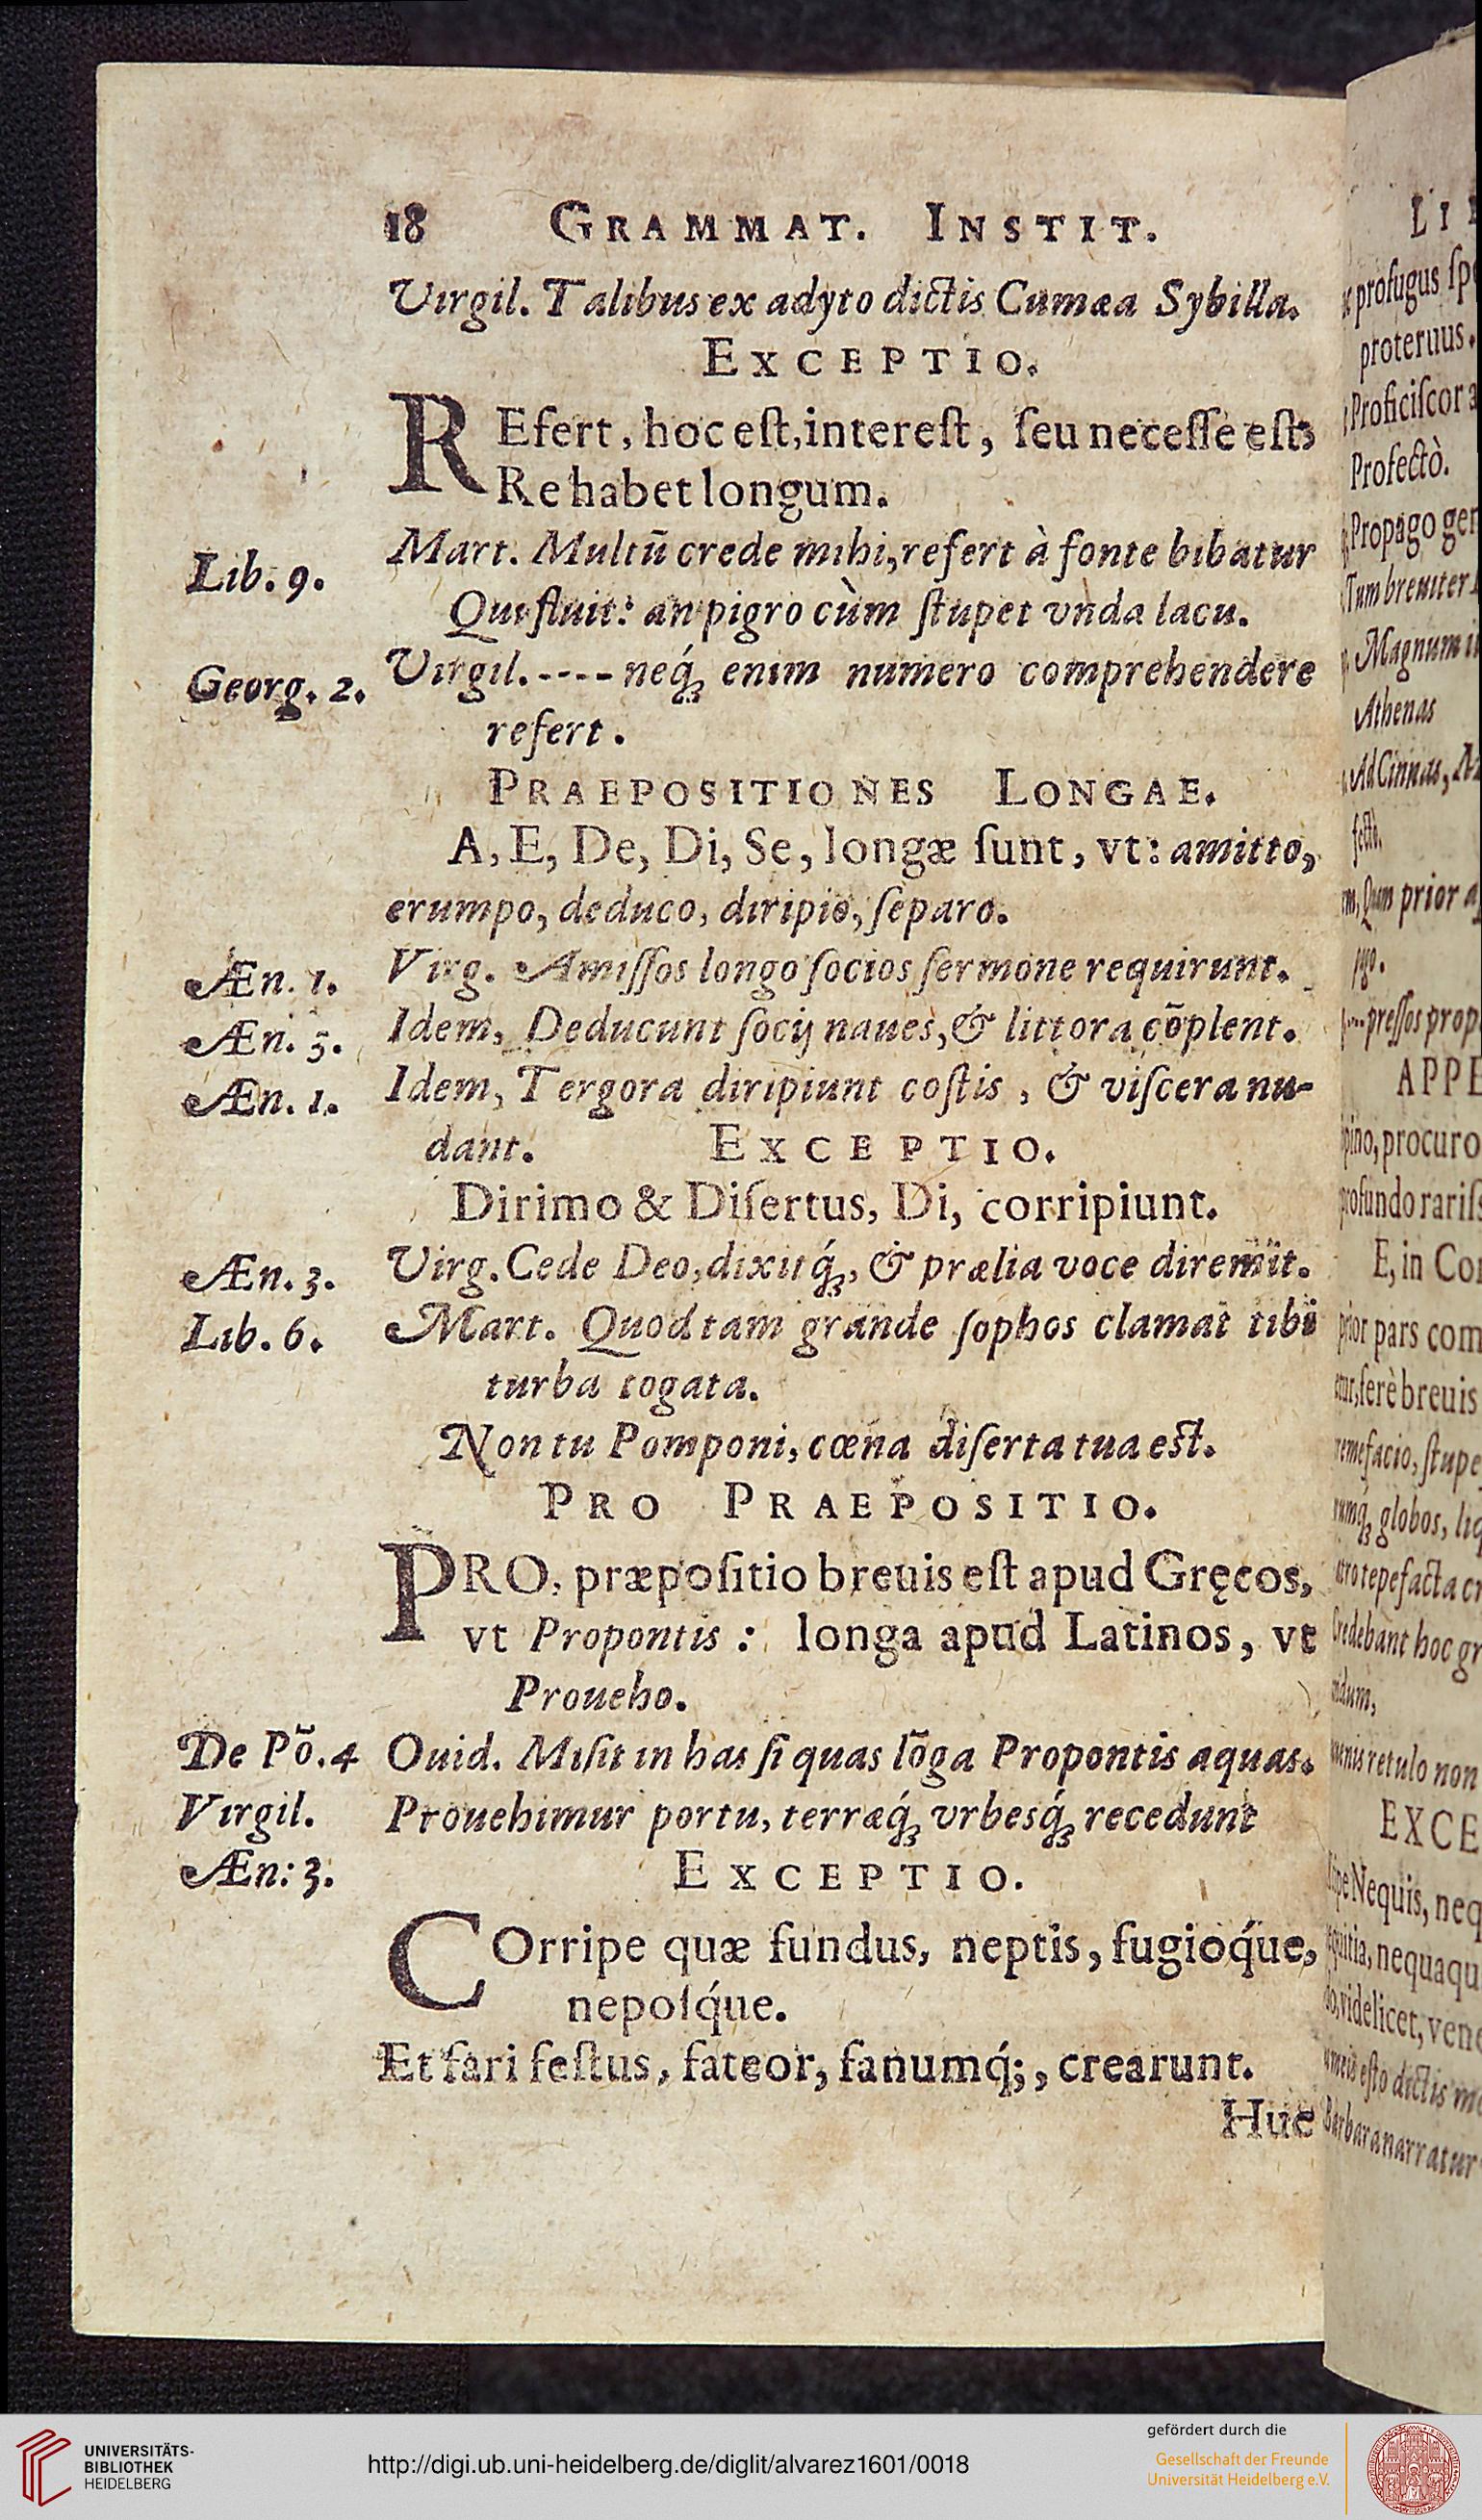 18 GRAMMAT. INSTIT.
Virgil. Talibus ex adyto dictis Cumæa Sybilla.
EXCEPTIO.
REfert, hoc eſt, intereſt, ſeu neceſſe eſt,
Re habet longum.
Lib. 9. Mart. Multū crede mihi, refert à fonte bibatur
Qui fluit: an pigro cùm ſtupet vnda lacu.
Georg. 2. Virgil. ---- neq́ꝫ enim numero comprehendere
refert.
PRAEPOSITIONES LONGAE.
A, E, De, Di, Se, longæ ſunt, vt: amitto,
erumpo, deduco, diripio, ſeparo.
Æn. 1. Virg. Amiſſos longo ſocios ſermone requirunt.
Æn. 5. Idem, Deducunt ſocij naues, & littora cōplent.
Æn. 1. Idem, Tergora diripiunt coſtis, & viſcera nu-
dant. EXCEPTIO.
Dirimo & Diſertus, Di, corripiunt.
Æn. 3. Virg. Cede Deo, dixitq́ꝫ, & prælia voce diremit.
Lib. 6. Mart. Quod tam grande ſophos clamat tibi
turba togata.
Non tu Pomponi, cœna diſerta tua eſt.
PRO PRAEPOSITIO.
PRO, præpoſitio breuis eſt apud Gręcos,
vt Propontis: longa apud Latinos, vt
Proueho.
De Pō. 4 Ouid. Miſit in has ſi quas lōga Propontis aquas.
Virgil. Prouehimur portu, terræq́ꝫ vrbesq́ꝫ recedunt
Æn: 3. EXCEPTIO.
COrripe quæ fundus, neptis, fugioq́ue,
nepoſq́ue.
Et fari feſtus, fateor, fanumq́;, crearunt.
Huc
profugus
proteruus.
Proficiſcor
Profectò.
Propago
Tum breuiter
Magnum
Athenas
Ad Cinnas,
prior
preſſos
APPE
procuro
profundo
E, in
prior pars
ferè breuis
globos,
tepefacta
Credebant hoc
retulo non
EXCE
Nequis,
videlicet,
eſto dictis
Barbara narratur
UNIVERSITÄTS-
BIBLIOTHEK
HEIDELBERG
http://digi.ub.uni-heidelberg.de/diglit/alvarez1601/0018
gefördert durch die
Gesellschaft der Freunde
Universität Heidelberg e.V.